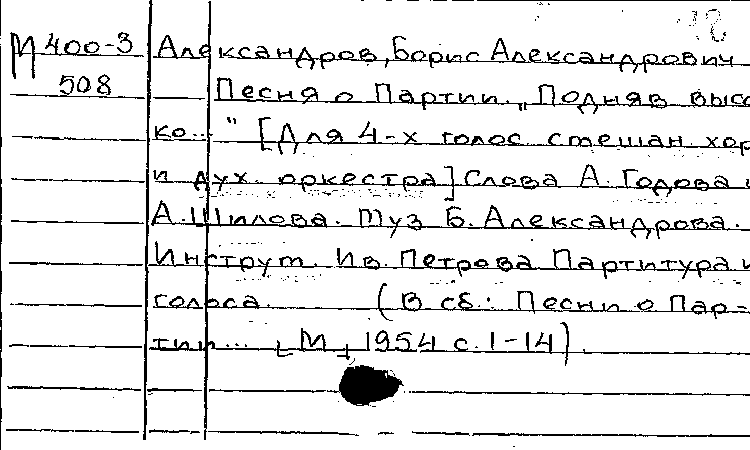 12
М 400-3 Александров, Борис Александрович
508 Песня о Партии. „Подняв высо
ко..." [Для 4-х голос. смешан. хор
и дух. оркестра] Слова А. Годова и
А. Шилова. Муз Б. Александрова.
Инструт. Ив. Петрова Партитура и
голоса. (В сб.: Песни о Пар-
тии... [М], 1954 с. 1-14).